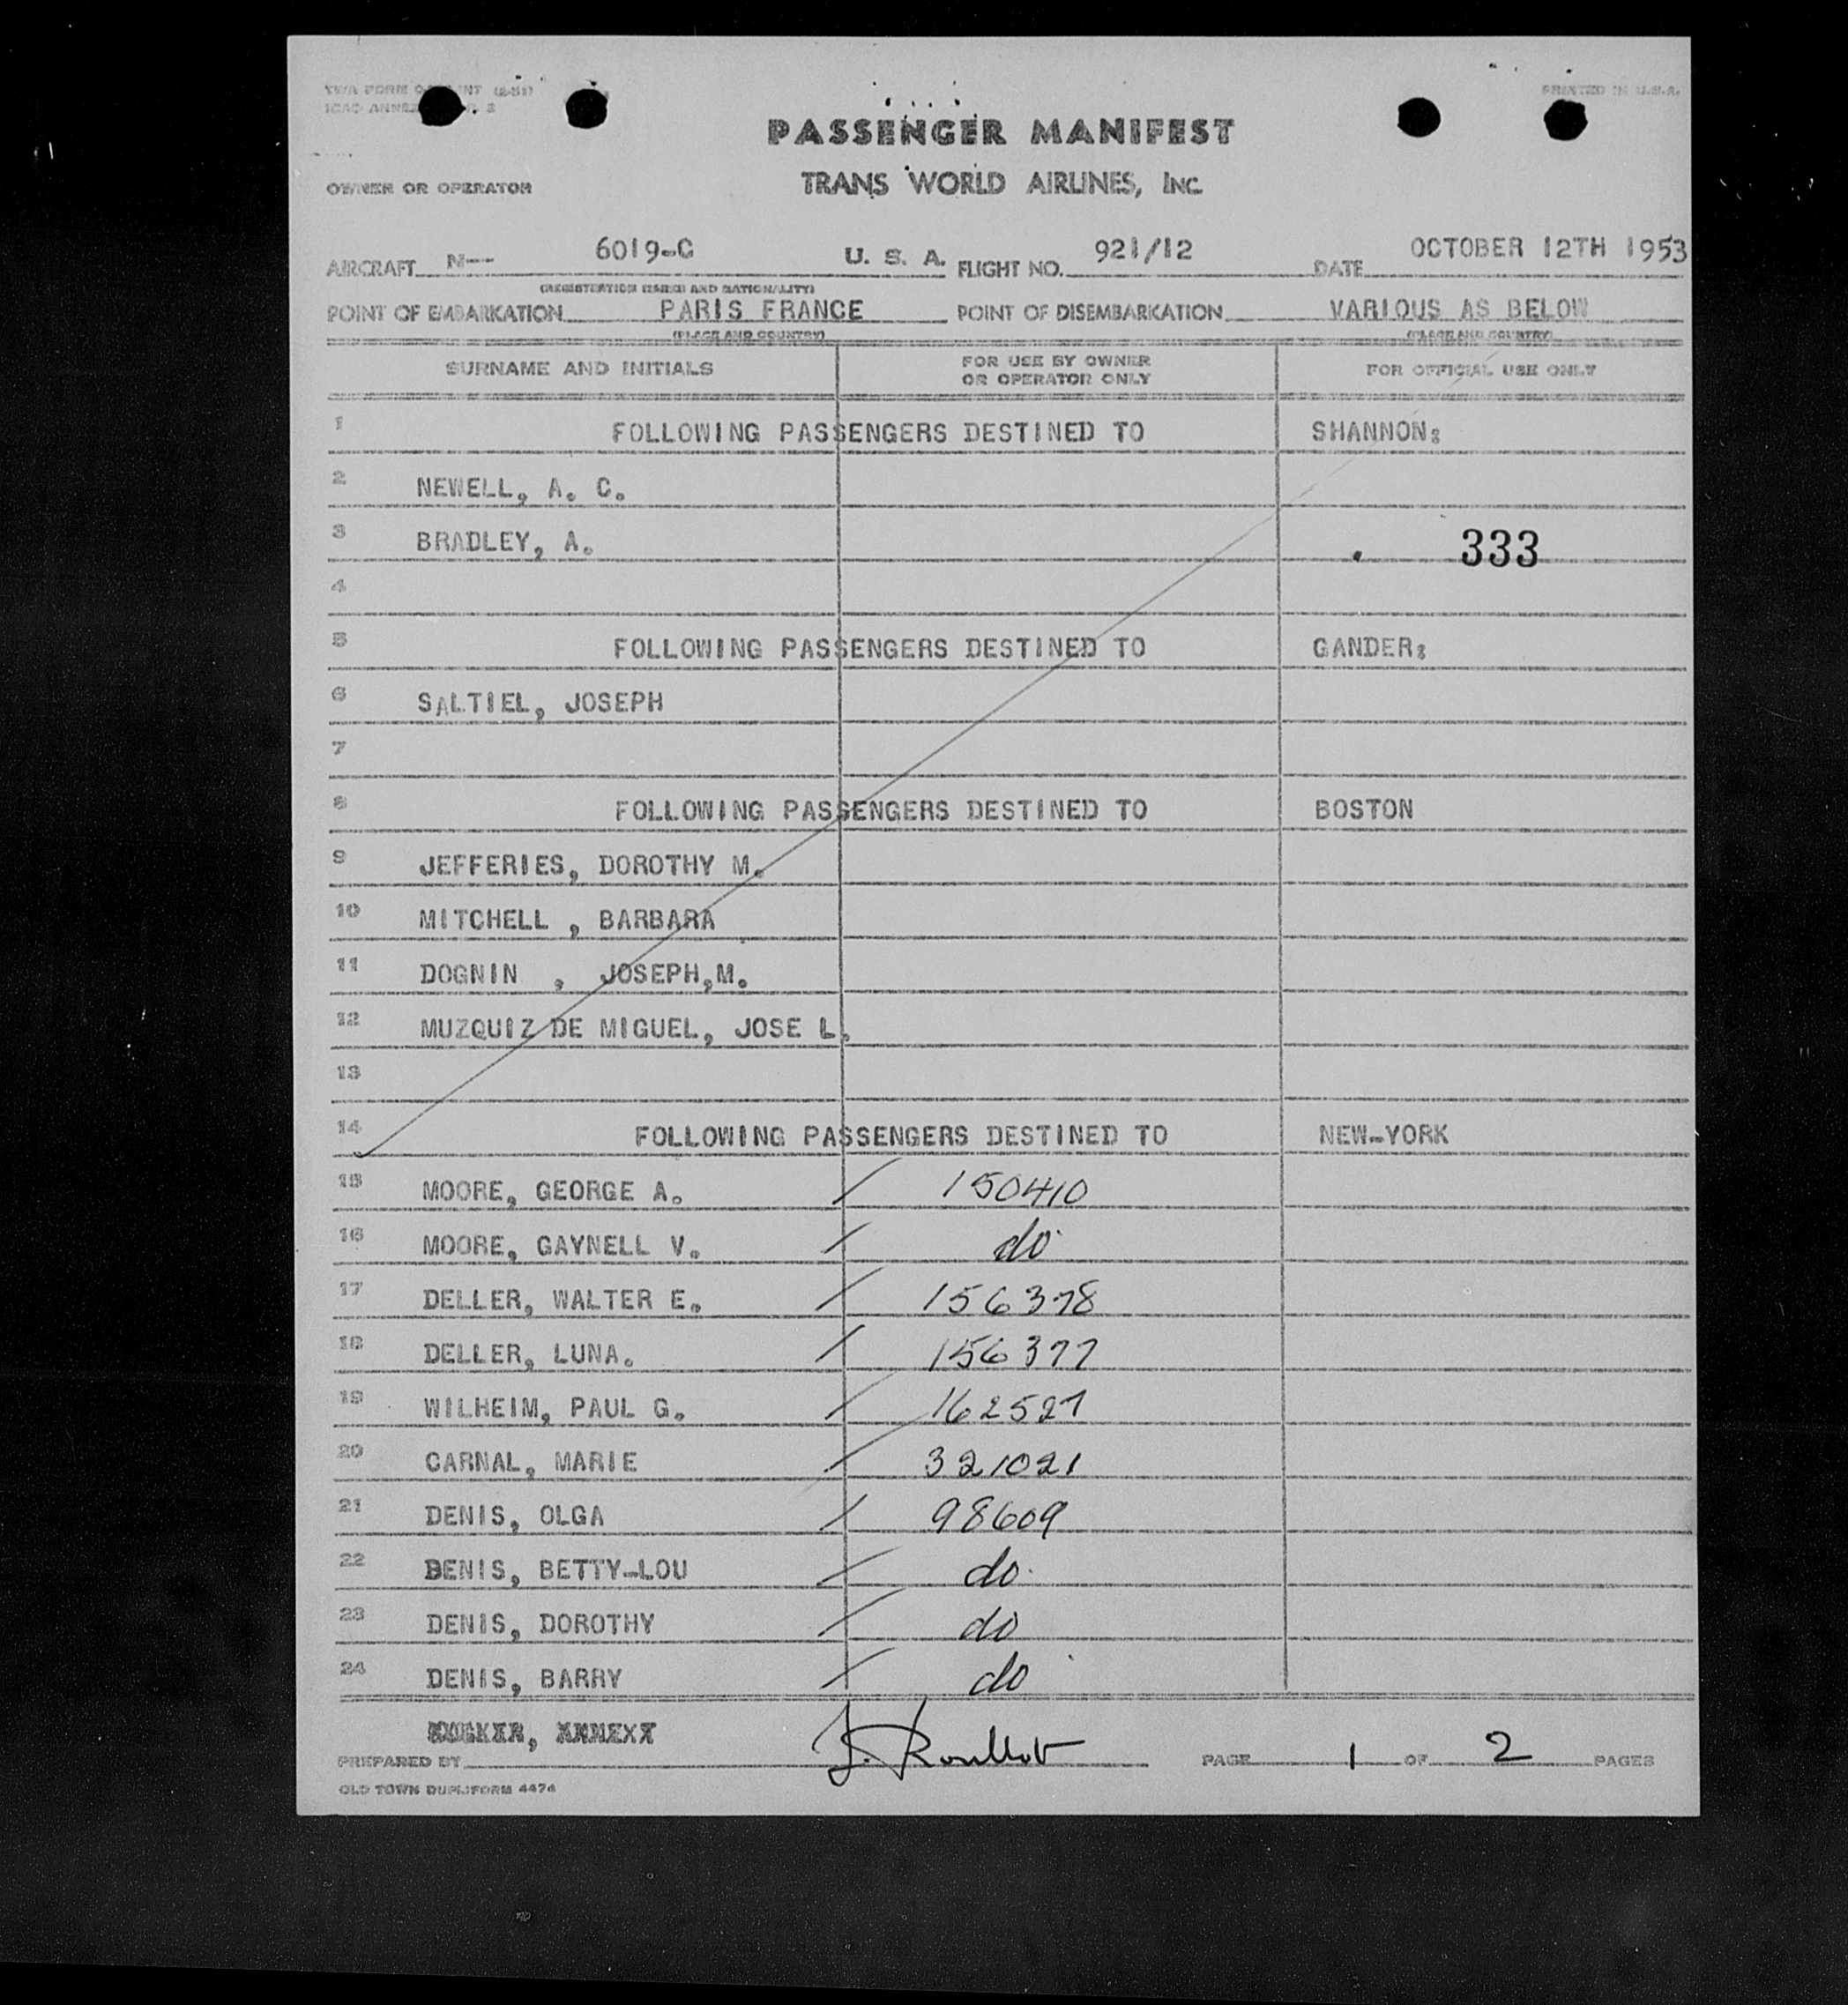 PRINTED IN U.S.A.
PASSENGER MANIFEST
OWNER OR OPERATOR TRANS WORLD AIRLINES, INC.
AIRCRAFT N-- 6019-C U. S. A. FLIGHT NO. 921/12 DATE OCTOBER 12TH 1953
(REGISTRATION MARKS AND NATIONALITY)
POINT OF EMBARKATION PARIS FRANCE POINT OF DISEMBARKATION VARIOUS AS BELOW
(PLACE AND COUNTRY) (PLACE AND COUNTRY)
SURNAME AND INITIALS FOR USE BY OWNER OR OPERATOR ONLY FOR OFFICIAL USE ONLY
1 FOLLOWING PASSENGERS DESTINED TO SHANNON:
2 NEWELL, A. C.
3 BRADLEY, A. 333
4
5 FOLLOWING PASSENGERS DESTINED TO GANDER:
6 SALTIEL, JOSEPH
7
8 FOLLOWING PASSENGERS DESTINED TO BOSTON
9 JEFFERIES, DOROTHY M.
10 MITCHELL , BARBARA
11 DOGNIN , JOSEPH,M.
12 MUZQUIZ DE MIGUEL, JOSE L.
13
14 FOLLOWING PASSENGERS DESTINED TO NEW-YORK
15 MOORE, GEORGE A. / 150410
16 MOORE, GAYNELL V. / do
17 DELLER, WALTER E. / 156378
18 DELLER, LUNA. / 156377
19 WILHEIM, PAUL G. / 162527
20 CARNAL, MARIE / 321021
21 DENIS, OLGA / 98609
22 DENIS, BETTY-LOU / do
23 DENIS, DOROTHY / do
24 DENIS, BARRY / do
PREPARED BY PAGE 1 OF 2 PAGES
OLD TOWN DUPLIFORM 4474